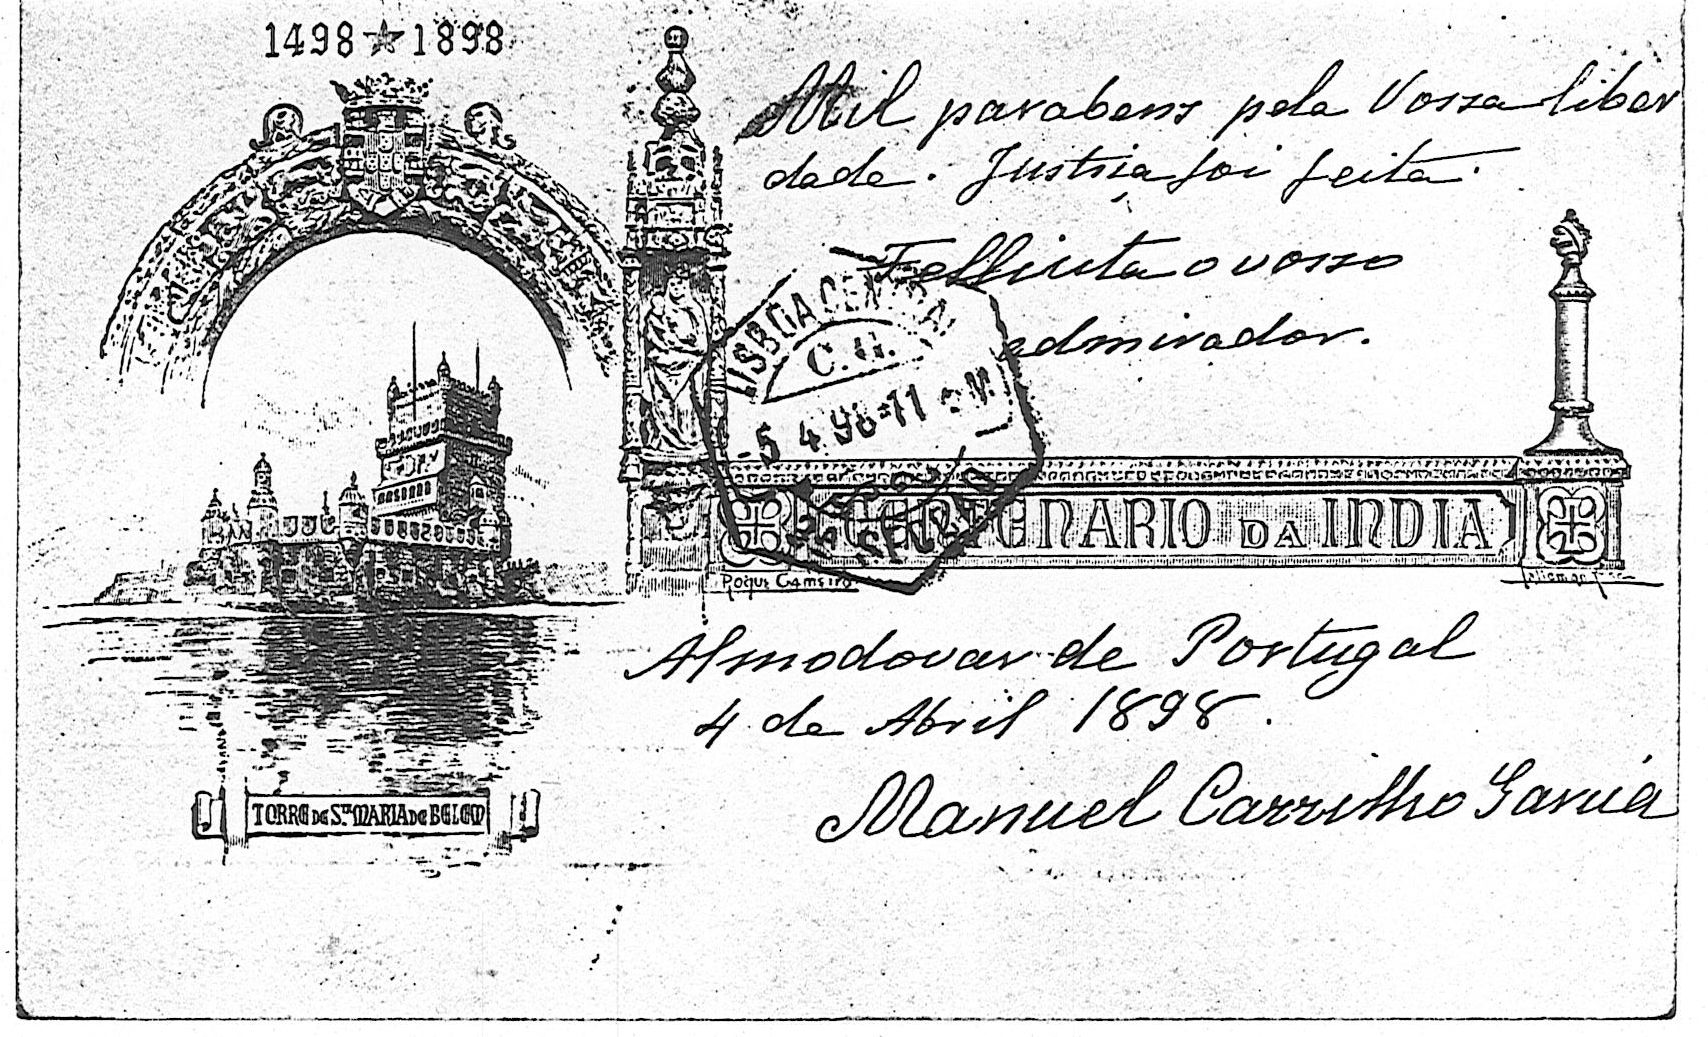 1498 ★ 1898
Mil parabens pela Vossa liber
dade. Justiça foi feita.
Fellicita o vosso
admirador.
LISBOA CENTRAL
C. G.
-5 4.98-11
CENTENARIO DA INDIA
Roque Gameiro
Almodovar de Portugal
4 de Abril 1898.
Manuel Carrilho Garcia
TORRE DE STA MARIA DE BELEM